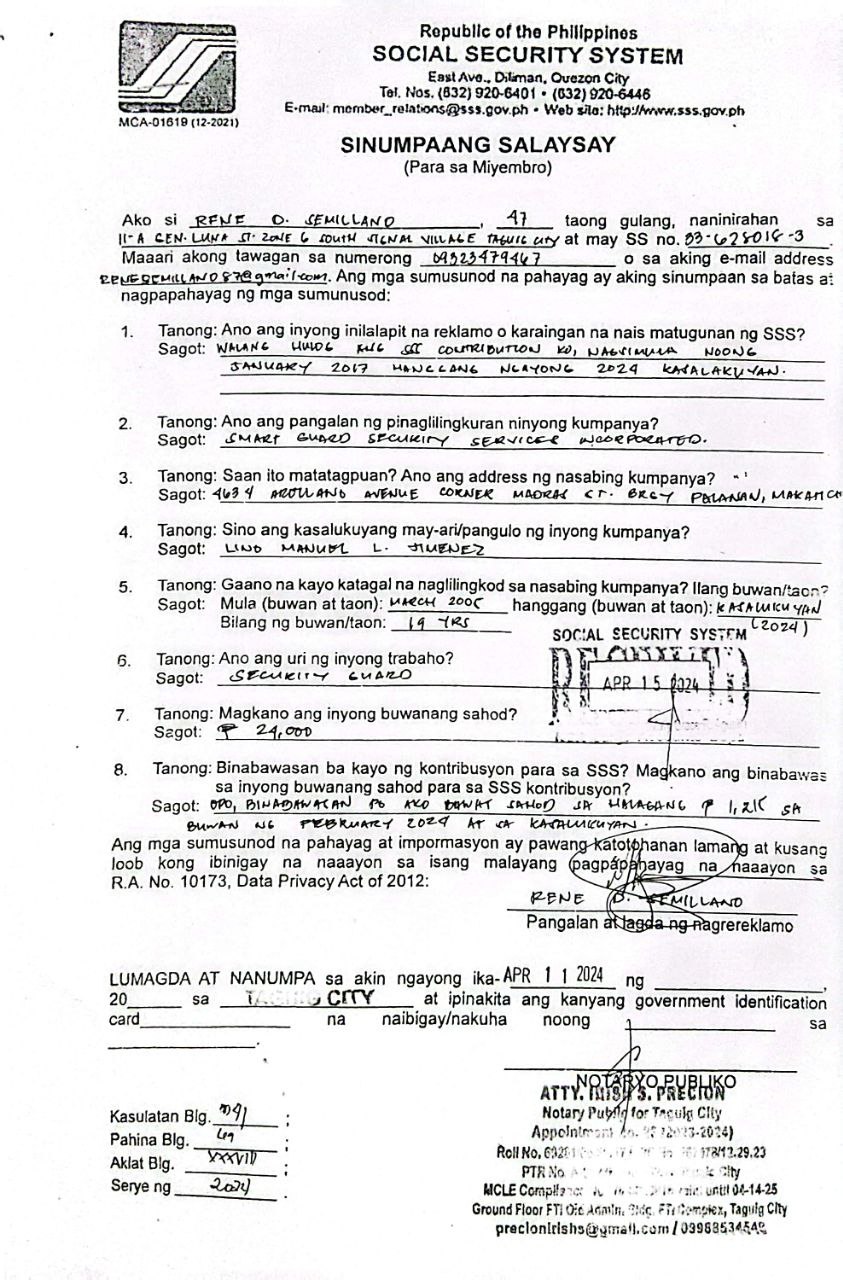 Republic of the Philippines
SOCIAL SECURITY SYSTEM
East Ave., Diliman, Quezon City
Tel. Nos. (632) 920-6401 • (632) 920-6446
E-mail: member_relations@sss.gov.ph • Web site: http://www.sss.gov.ph
MCA-01619 (12-2021)
SINUMPAANG SALAYSAY
(Para sa Miyembro)
Ako si RENE D. SEMILLANO, 47 taong gulang, naninirahan sa
11-A GEN. LUNA ST. ZONE 6 SOUTH SIGNAL VILLAGE TAGUIG CITY at may SS no. 33-628018-3.
Maaari akong tawagan sa numerong 09323479467 o sa aking e-mail address
@gmail.com. Ang mga sumusunod na pahayag ay aking sinumpaan sa batas at
nagpapahayag ng mga sumunusod:
1. Tanong: Ano ang inyong inilalapit na reklamo o karaingan na nais matugunan ng SSS?
Sagot: WALANG HULOG ANG SSS CONTRIBUTION KO, NAGSIMULA NOONG
JANUARY 2017 HANGGANG NGAYONG 2024 KASALAKUYAN.
2. Tanong: Ano ang pangalan ng pinaglilingkuran ninyong kumpanya?
Sagot: SMART GUARD SECURITY SERVICES INCORPORATED.
3. Tanong: Saan ito matatagpuan? Ano ang address ng nasabing kumpanya?
Sagot: 4634 ARELLANO AVENUE CORNER MADRAS ST. BRGY PALANAN, MAKATI
4. Tanong: Sino ang kasalukuyang may-ari/pangulo ng inyong kumpanya?
Sagot: LINO MANUEL L. JIMENEZ
5. Tanong: Gaano na kayo katagal na naglilingkod sa nasabing kumpanya? Ilang buwan/taon?
Sagot: Mula (buwan at taon): MARCH 2005 hanggang (buwan at taon): KASALUKUYAN
(2024)
Bilang ng buwan/taon: 19 YRS
SOCIAL SECURITY SYSTEM
RECEIVED
APR 15 2024
6. Tanong: Ano ang uri ng inyong trabaho?
Sagot: SECURITY GUARD
7. Tanong: Magkano ang inyong buwanang sahod?
Sagot: ₱ 24,000
8. Tanong: Binabawasan ba kayo ng kontribusyon para sa SSS? Magkano ang binabawas
sa inyong buwanang sahod para sa SSS kontribusyon?
Sagot: OPO, BINABAWASAN PO AKO BAWAT SAHOD SA HALAGANG ₱ 1,215 SA
BUWAN NG FEBRUARY 2024 AT SA KASALUKUYAN.
Ang mga sumusunod na pahayag at impormasyon ay pawang katotohanan lamang at kusang
loob kong ibinigay na naaayon sa isang malayang pagpapahayag na naaayon sa
R.A. No. 10173, Data Privacy Act of 2012:
RENE D. SEMILLANO
Pangalan at lagda ng nagrereklamo
LUMAGDA AT NANUMPA sa akin ngayong ika-APR 11 2024 ng ,
20 sa TAGUIG CITY at ipinakita ang kanyang government identification
card na naibigay/nakuha noong sa
.
NOTARYO PUBLIKO
ATTY. IRISH S. PRECION
Notary Public for Taguig City
Appointment No. (2023-2024)
Roll No.
PTR No. City
MCLE Compliance until 04-14-25
Ground Floor FTI Old Admin. Bldg. FTI Complex, Taguig City
precionirishs@gmail.com /
Kasulatan Blg. ;
Pahina Blg. ;
Aklat Blg. XXXVIII ;
Serye ng 2024 ;